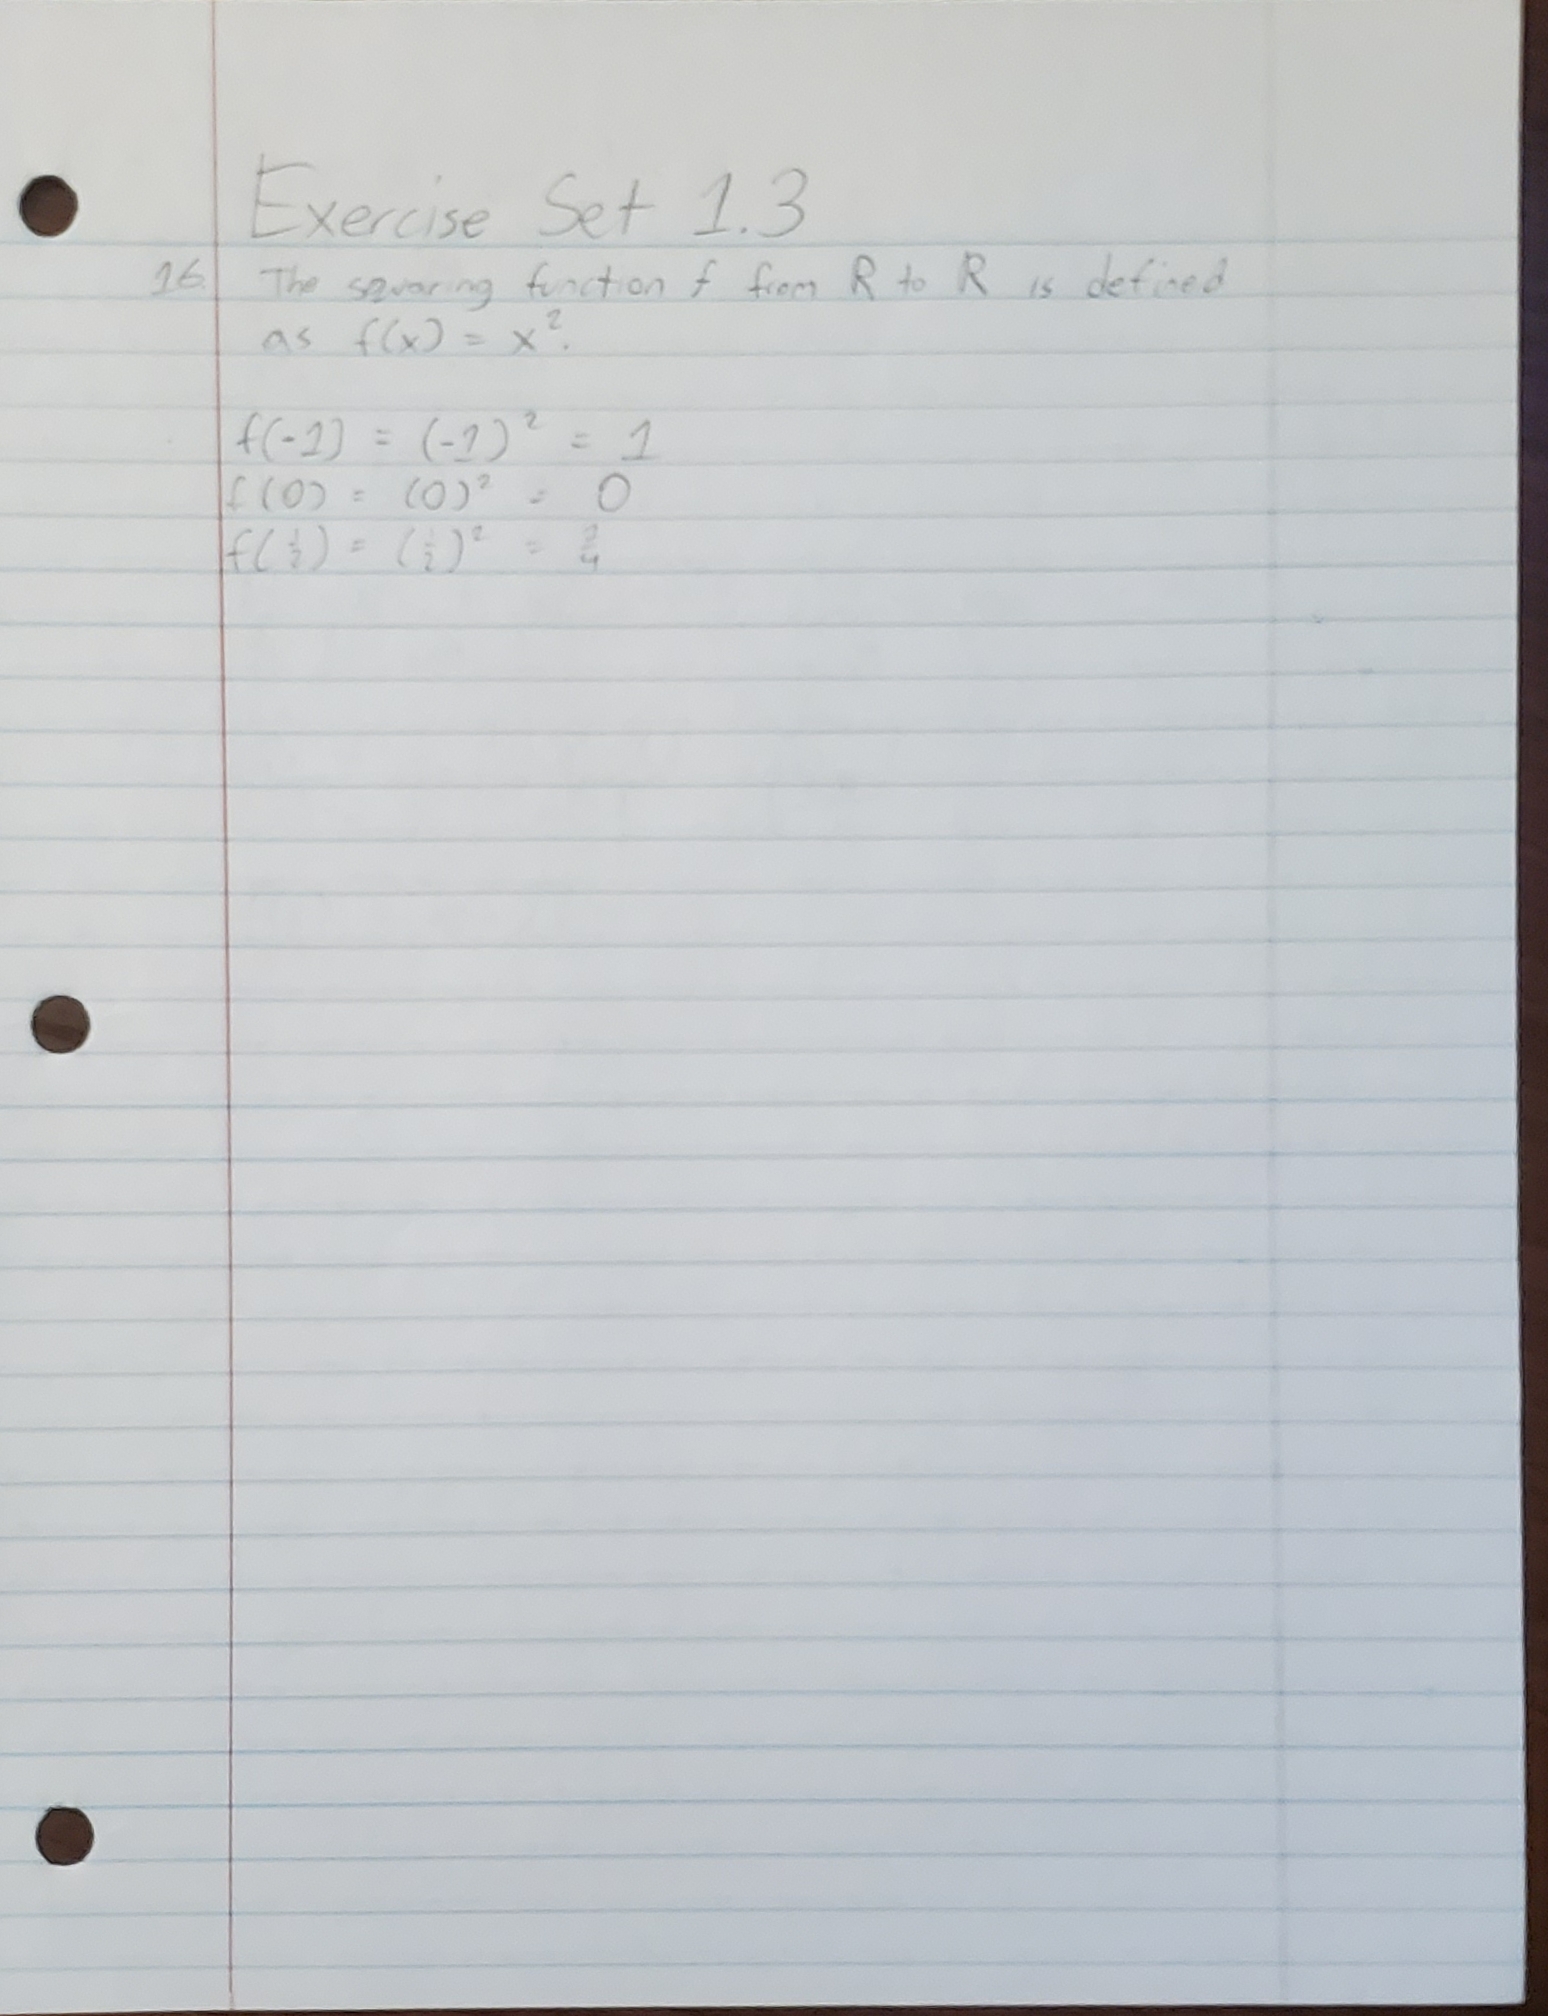 Exercise Set 1.3
16. The squaring function f from R to R is defined
as f(x) = x².
f(-1) = (-1)² = 1
f(0) = (0)² = 0
f(½) = (½)² = ¼